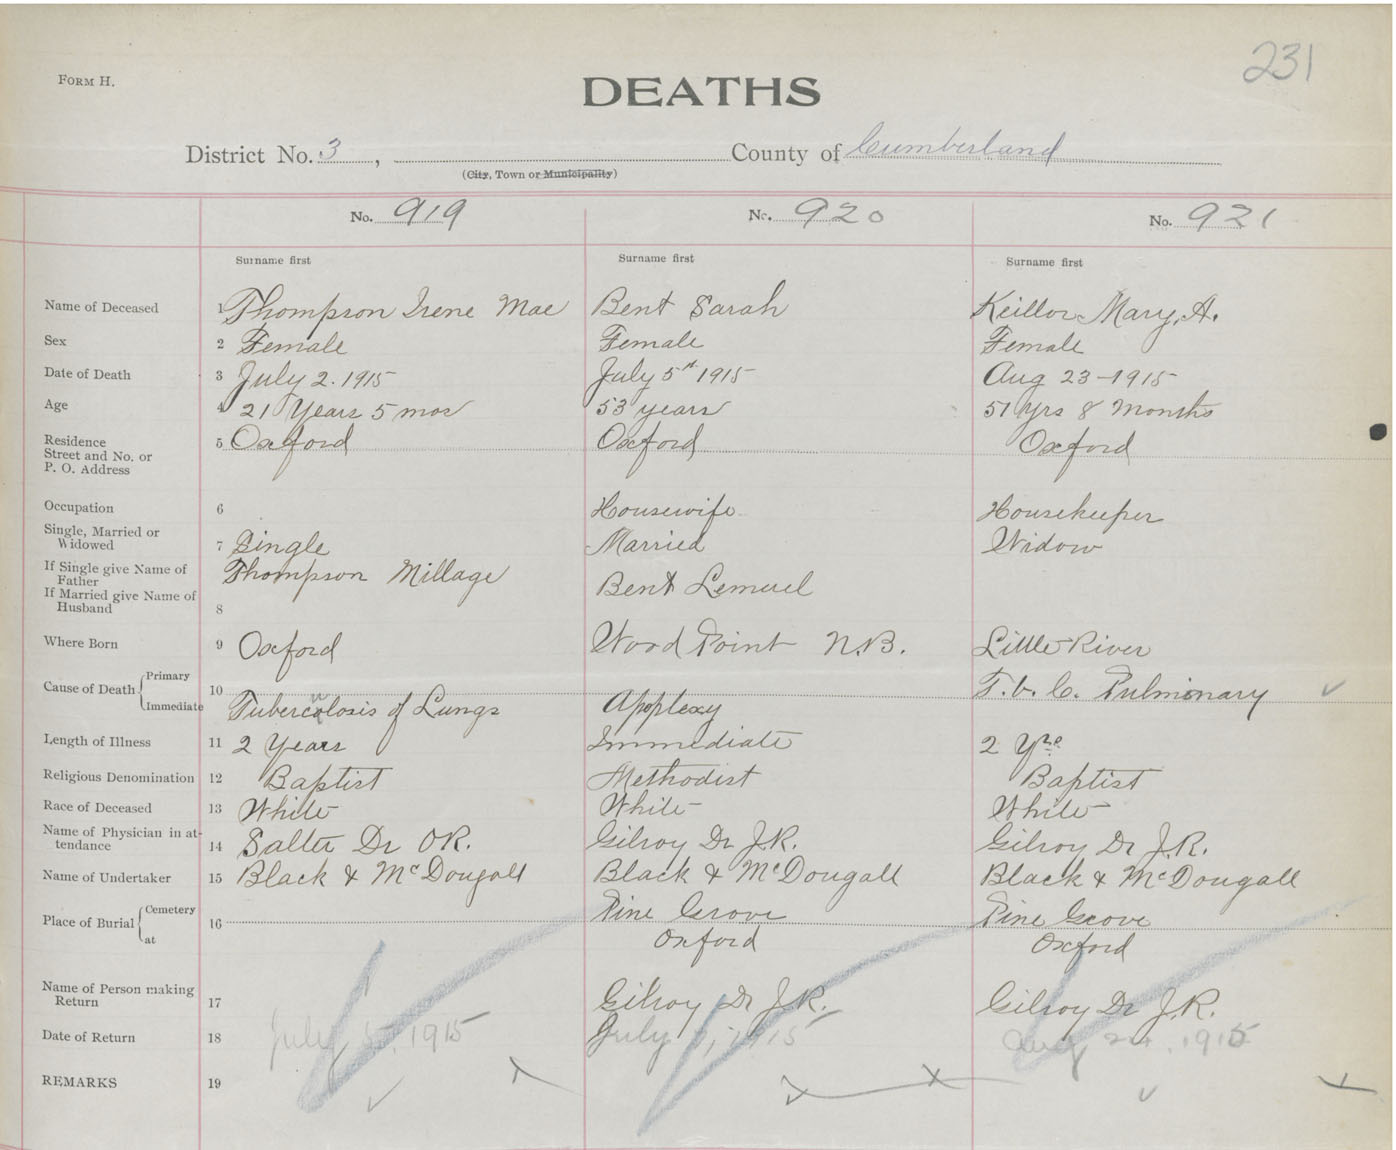 231
FORM H.
DEATHS
District No. 3, County of Cumberland
(City, Town or Municipality)
No. 919 No. 920 No. 921
Surname first Surname first Surname first
Name of Deceased 1 Thompson Irene Mae Bent Sarah Keillor Mary, A.
Sex 2 Female Female Female
Date of Death 3 July 2. 1915 July 5th 1915 Aug 23-1915
Age 4 21 Years 5 mos 53 years 51 yrs 8 Months
Residence
Street and No. or
P. O. Address
5 Oxford Oxford Oxford
Occupation 6 Housewife Housekeeper
Single, Married or
Widowed
7 Single Married Widow
If Single give Name of
Father
If Married give Name of
Husband
8 Thompson Millage Bent Lemuel
Where Born 9 Oxford Wood Point N.B. Little River
Cause of Death Primary
Immediate
10 Tuberculosis of Lungs Apoplexy T. b. C. Pulmonary
Length of Illness 11 2 Years Immediate 2 Yrs
Religious Denomination 12 Baptist Methodist Baptist
Race of Deceased 13 White White White
Name of Physician in at-
tendance
14 Salter Dr OR. Gilroy Dr J.R. Gilroy Dr J.R.
Name of Undertaker 15 Black & McDougall Black & McDougall Black & McDougall
Place of Burial Cemetery
at
16 Pine Grove Pine Grove
Oxford Oxford
Name of Person making
Return
17 Gilroy Dr J.R. Gilroy Dr J.R.
Date of Return 18 July 5, 1915 July 1915 Aug 24, 1915
REMARKS 19